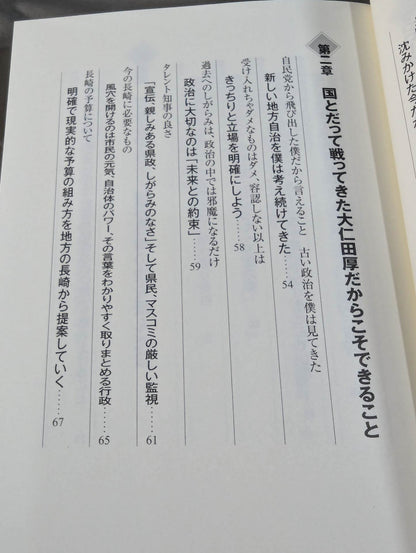 沈みかけた今だ
第二章　国とだって戦ってきた大仁田厚だからこそできること
自民党から飛び出した僕だから言えること　古い政治を僕は見てきた
新しい地方自治を僕は考え続けてきた……54
受け入れちゃダメなものはダメ、容認しない以上は
きっちりと立場を明確にしよう……58
過去へのしがらみは、政治の中では邪魔になるだけ
政治に大切なのは「未来との約束」……59
タレント知事の良さ
「宣伝、親しみある県政、しがらみのなさ」そして県民、マスコミの厳しい監視……61
今の長崎に必要なもの
風穴を開けるのは市民の元気、自治体のパワー、その言葉をわかりやすく取りまとめる行政……65
長崎の予算について
明確で現実的な予算の組み方を地方の長崎から提案していく……67